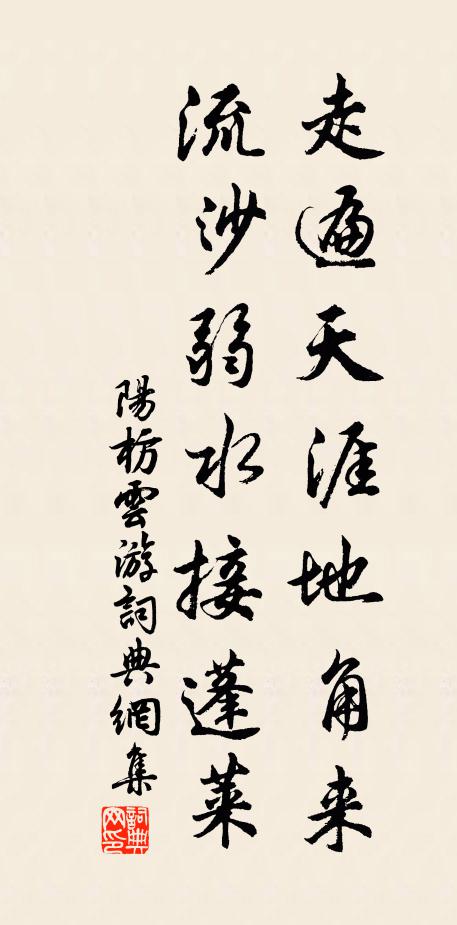 走遍天涯地角来
流沙弱水接蓬莱
陽枋雲游詞典網集
詞典網印